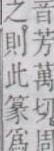 音芳萬切周
之則此篆爲